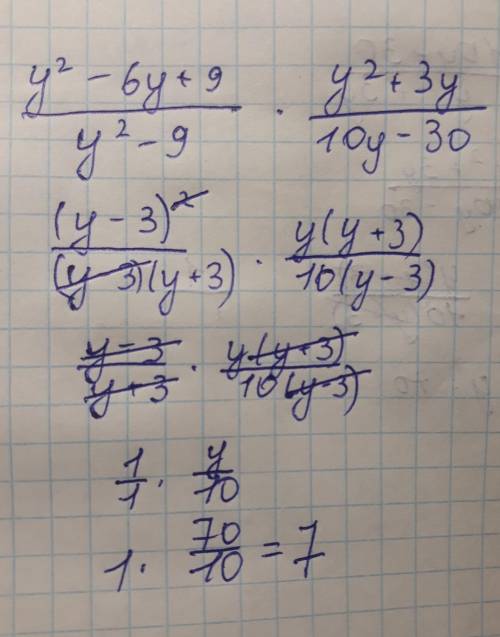 y² - 6y + 9 / y² - 9 · y² + 3y / 10y - 30
(y - 3)² / (y - 3)(y + 3) · y(y + 3) / 10(y - 3)
y - 3 / y + 3 · y(y + 3) / 10(y - 3)
1/1 · y/10
1 · 70/10 = 7